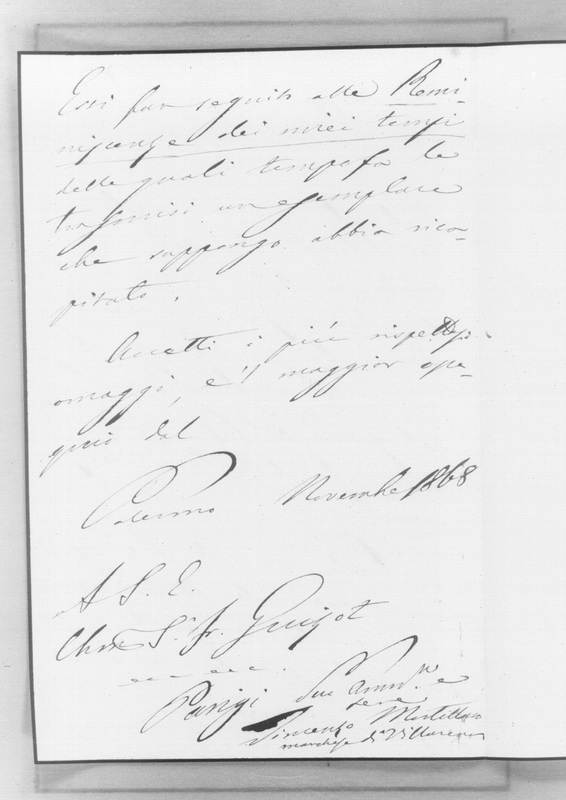 Essi fan seguito alle Remi-
niscenze dei miei tempi
delle quali tempo fa le
trasmisi un esemplare
che suppongo abbia rica-
pitato.
Accetti i più rispettosi
omaggi, e 'l maggior osse-
quio del
Palermo Novembre 1868
A S. E.
S.r Fr. Guizot
Parigi Suo
Vincenzo Mortillaro
marchese di Villarena